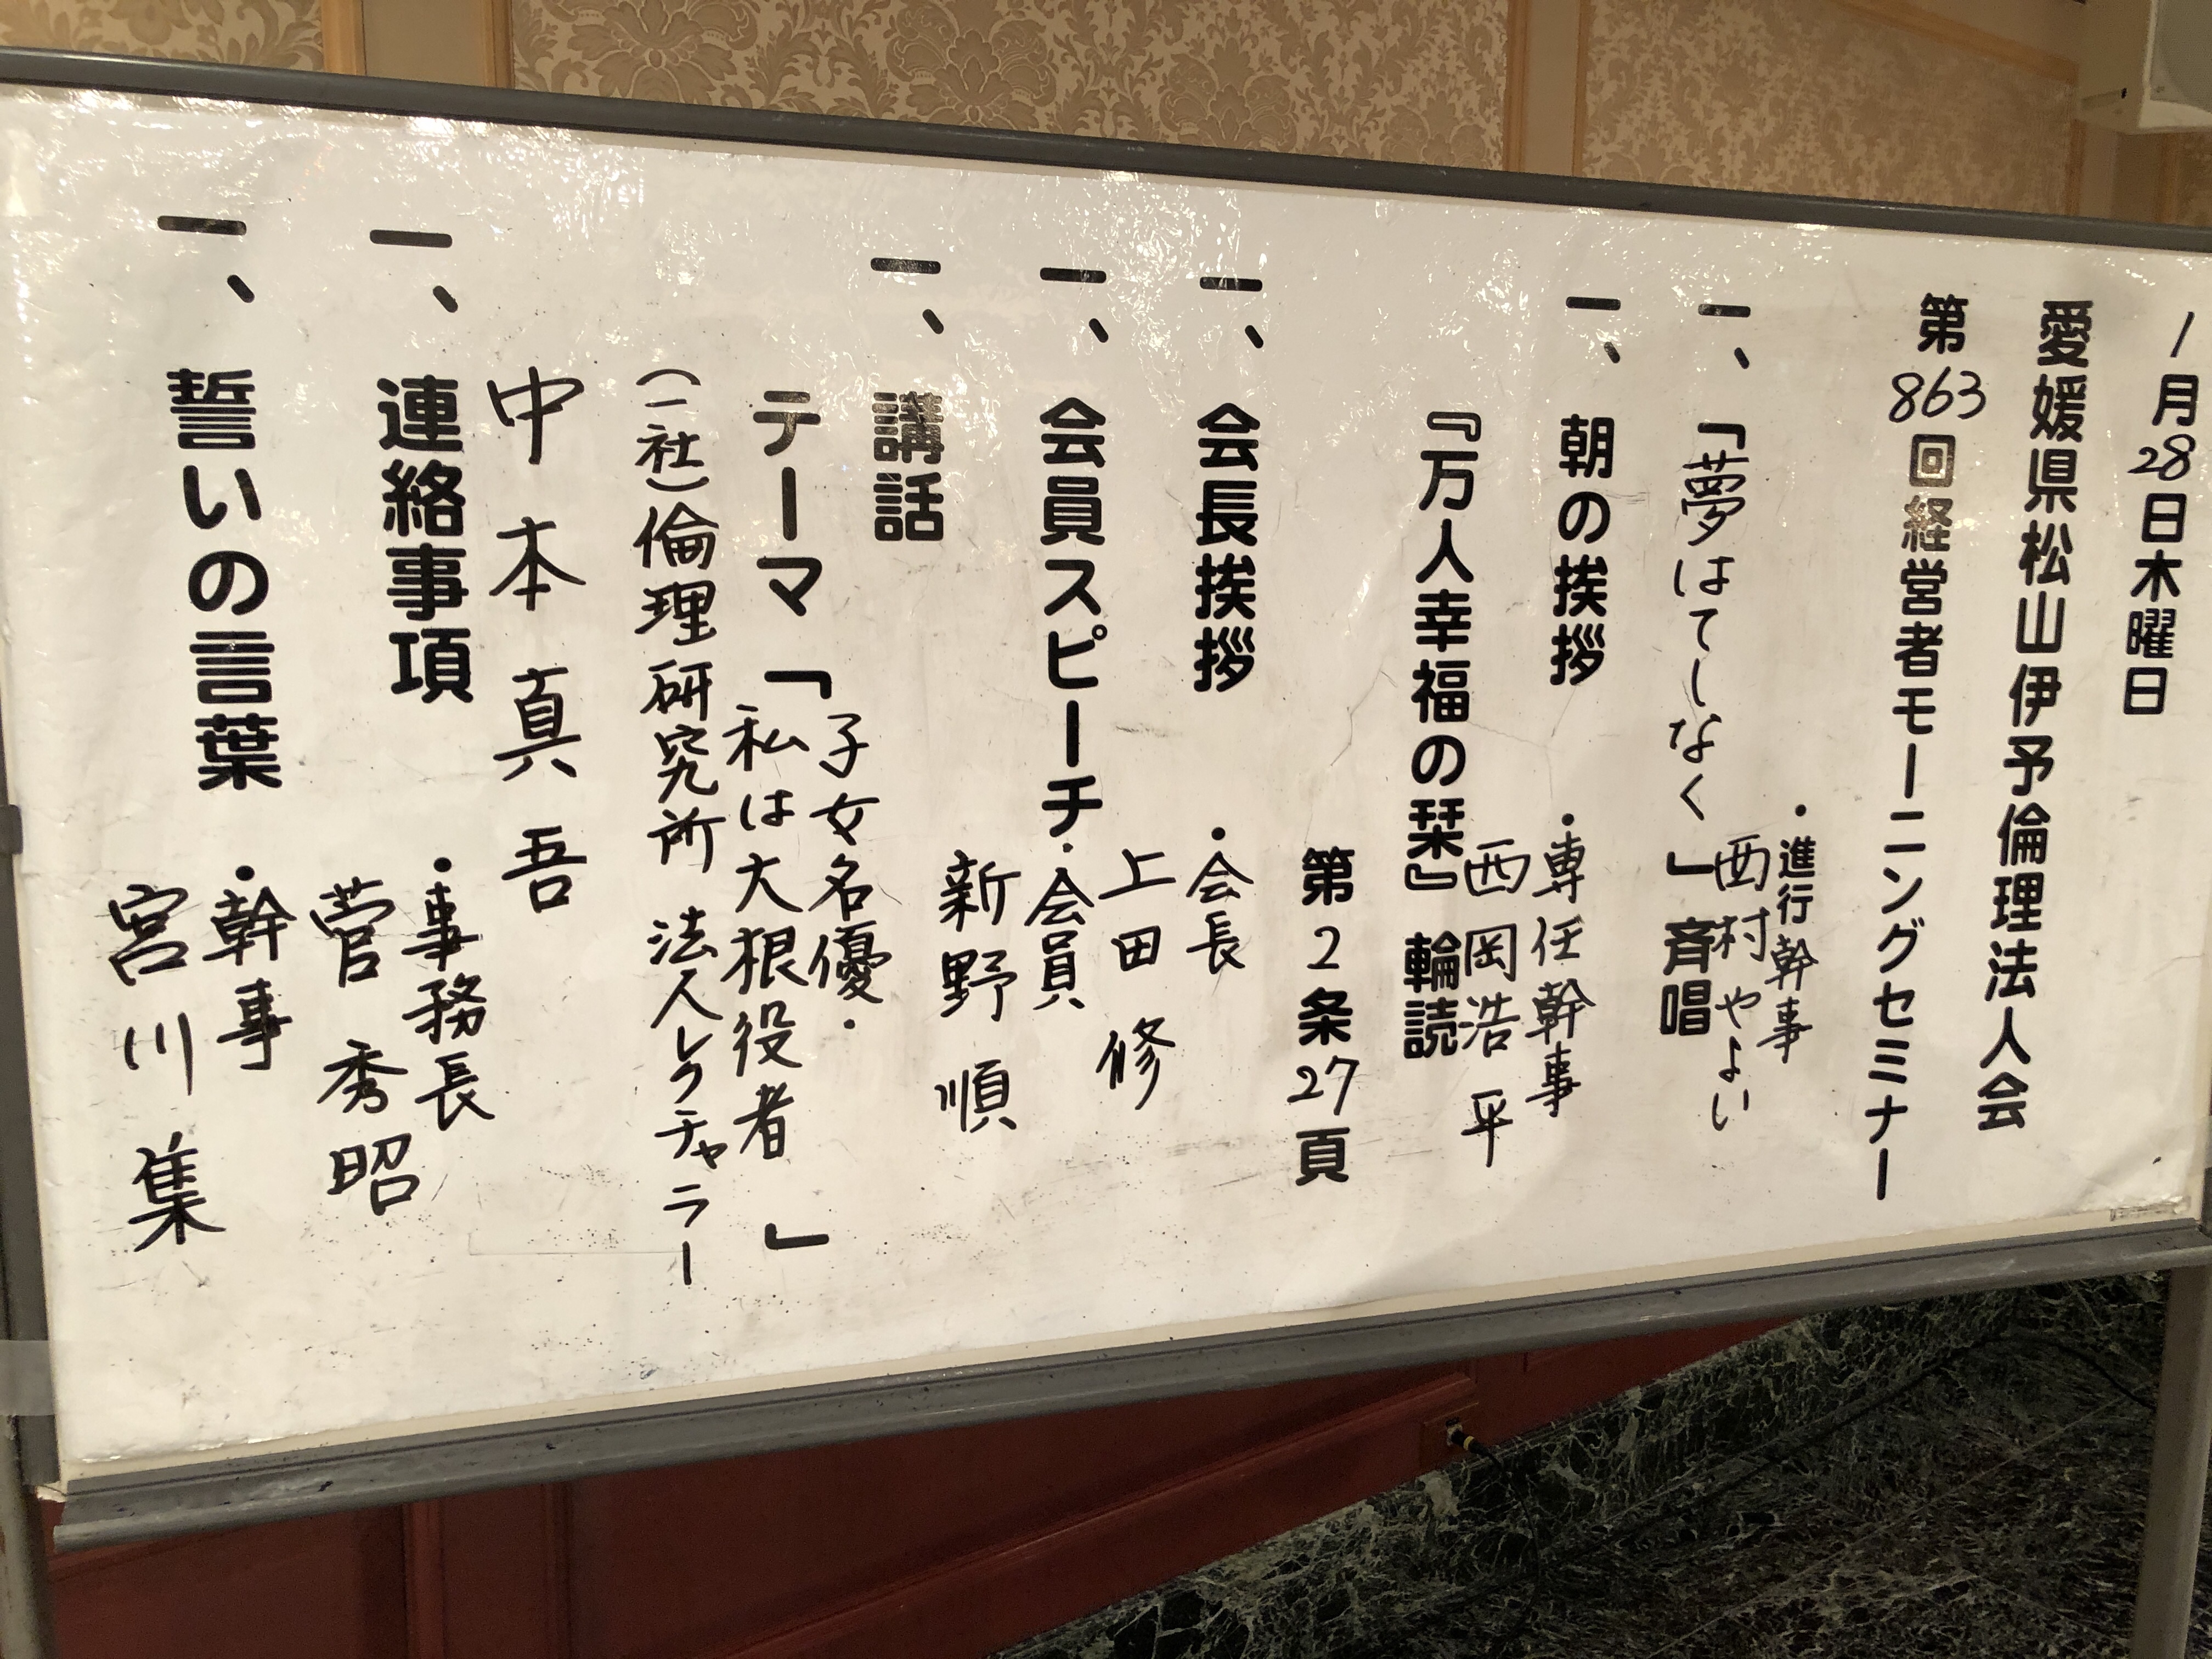 1月28日木曜日
愛媛県松山伊予倫理法人会
第863回経営者モーニングセミナー
・進行幹事
西村やよい
一、「夢はてしなく」斉唱
一、朝の挨拶
・専任幹事
西岡浩平
『万人幸福の栞』輪読
第2条27頁
一、会長挨拶
・会長
上田 修
一、会員スピーチ・会員
新野 順
一、講話
テーマ「子女名優・
私は大根役者」
(一社)倫理研究所 法人レクチャラー
中本真吾
一、連絡事項
・事務長
菅 秀昭
一、誓いの言葉
・幹事
宮川 集